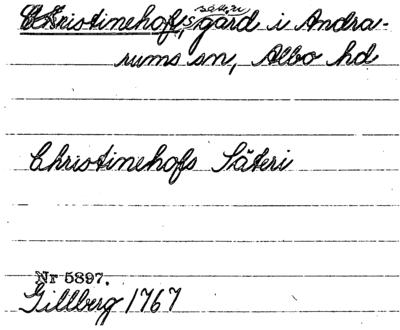 Christinehofs, säteri gård i Andra-
rums sn, Albo hd
Christinehofs Säteri
Nr 5897.
Gillberg 1767